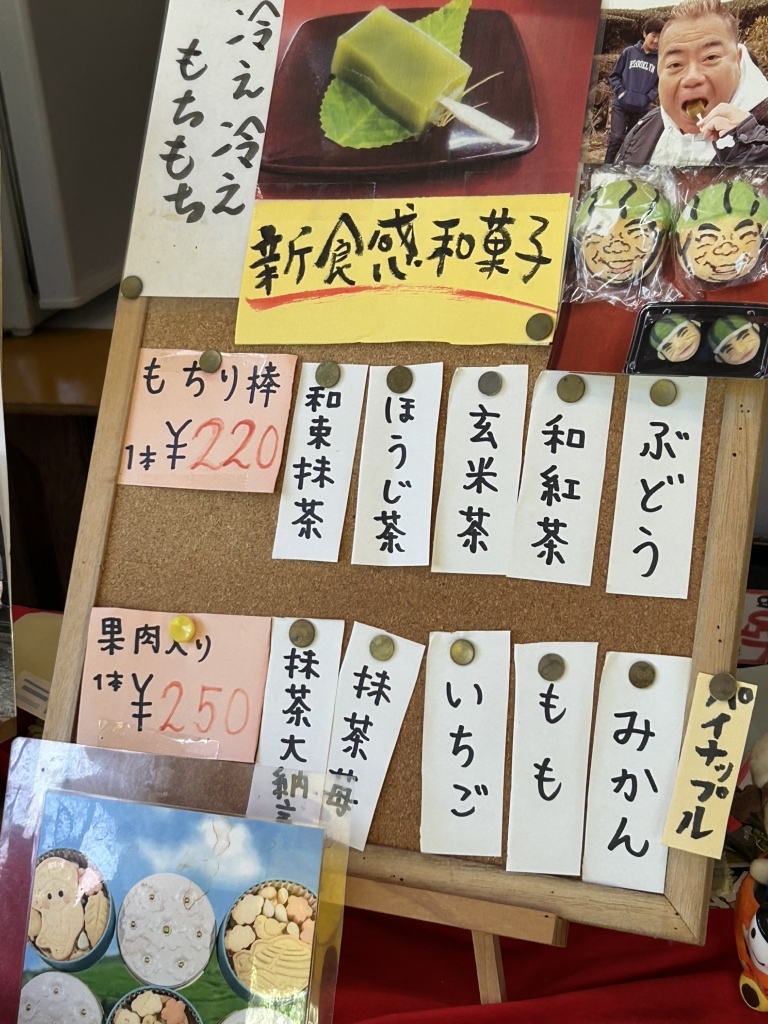 冷え冷え
もちもち
BROOKLYN
新食感和菓子
もちり棒
1本¥220
和束抹茶
ほうじ茶
玄米茶
和紅茶
ぶどう
果肉入り
1本¥250
抹茶大納言
抹茶苺
いちご
もも
みかん
パイナップル